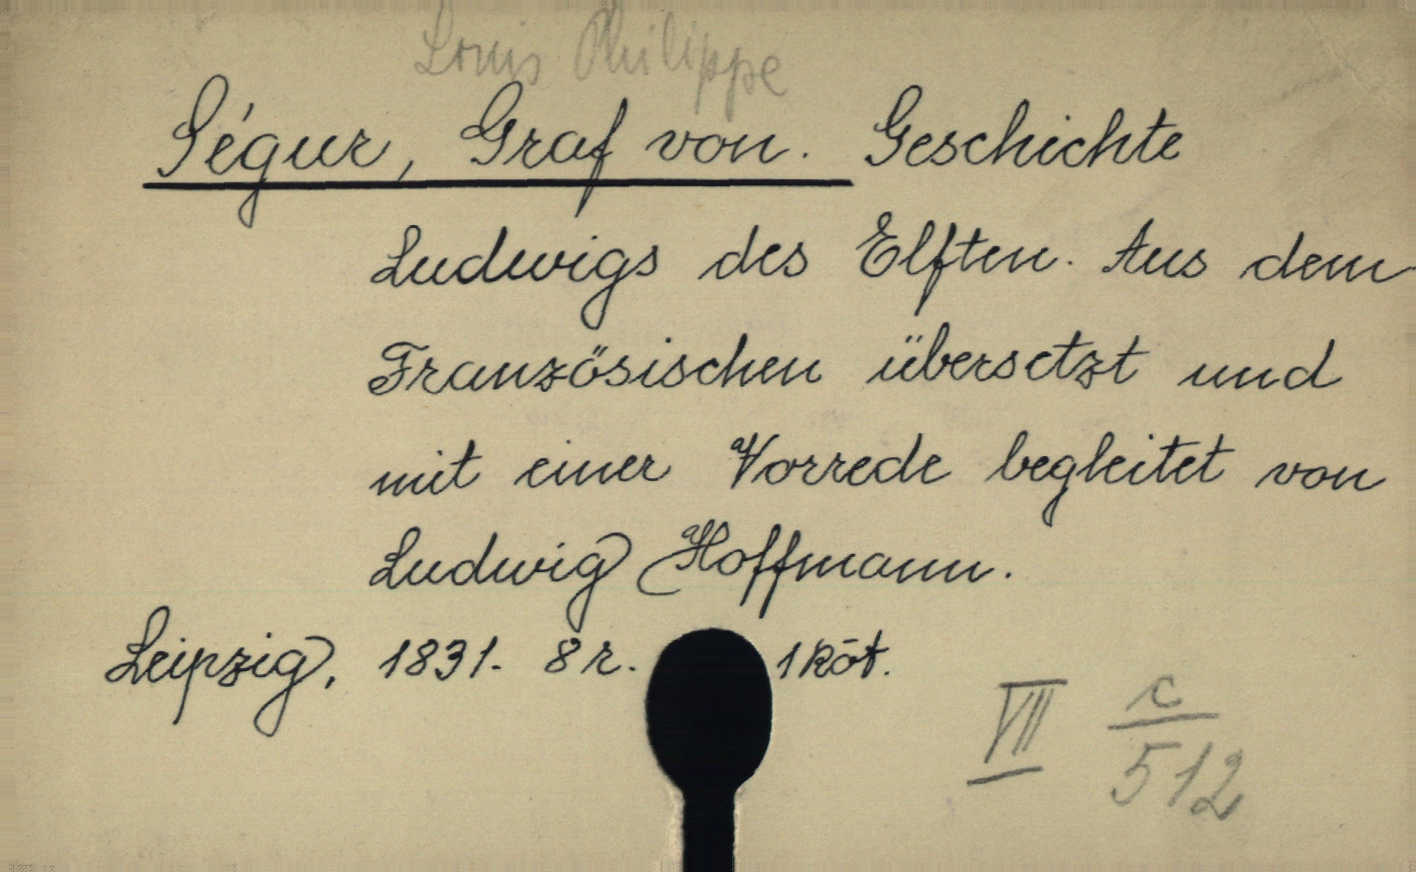 Louis Philippe
Ségur, Graf von. Geschichte
Ludwigs des Elften. Aus dem
Französischen übersetzt und
mit einer Vorrede begleitet von
Ludwig Hoffmann.
Leipzig, 1831. 8r. 1 köt.
VII c/512